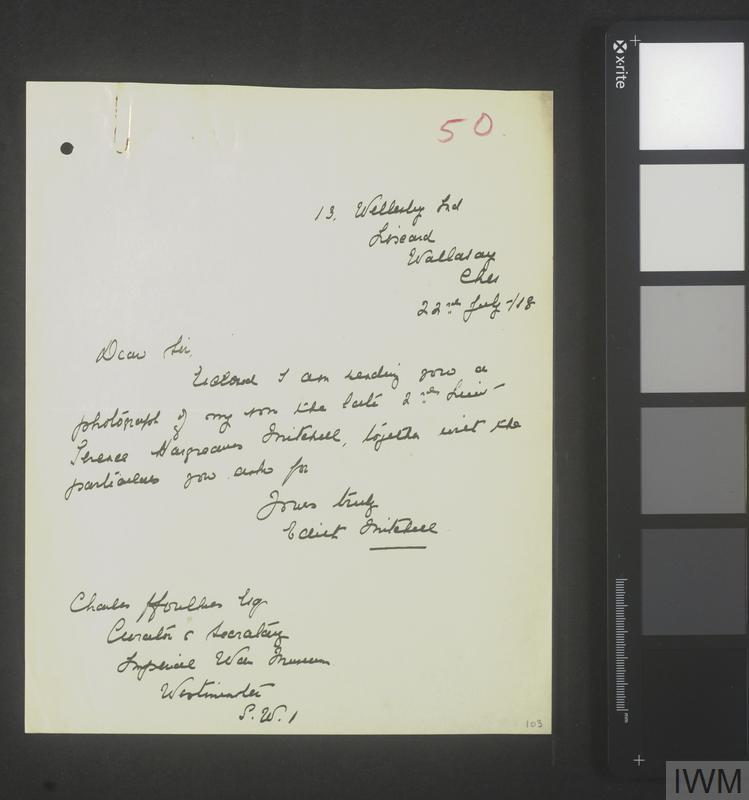 50
13, Wellesley Rd
Liscard
Wallasey
Ches
22nd July /18
Dear Sir,
Enclosed I am sending you a
photograph of my son the late 2nd Lieut
Terence Hargreaves Mitchell, together with the
particulars you ask for
Yours truly
Edith Mitchell
Charles ffoulkes Esq
Curator & Secretary
Imperial War Museum
Westminster
S.W.1
103
x-rite
mm
IWM